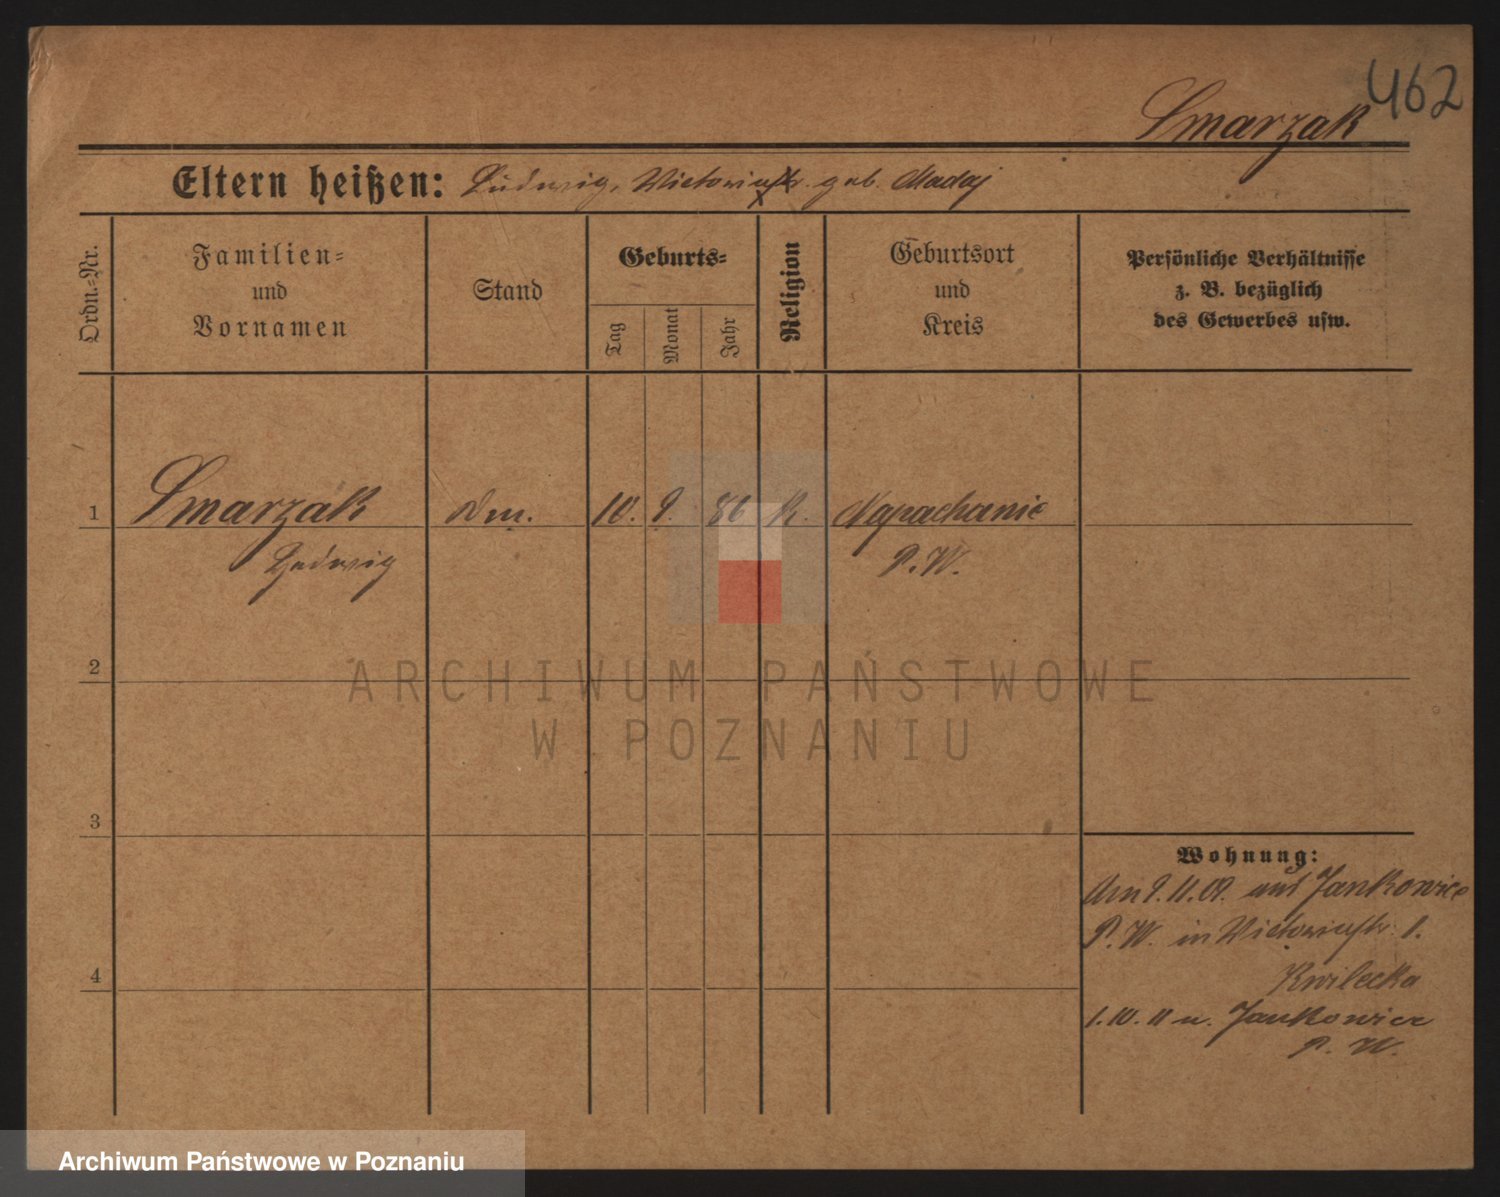 462
Smarzak
Eltern heißen: Ludwig, Victoria geb. Madaj
Ordn.=Nr.
Familien=
und
Vornamen
Stand
Geburts=
Tag
Monat
Jahr
Religion
Geburtsort
und
Kreis
Persönliche Verhältnisse
z. B. bezüglich
des Gewerbes usw.
1 Smarzak Dm. 10. 9. 86 K. Napachanie
Hedwig P. W.
2
3
4
Wohnung:
Am 9.11.09. aus Jankowice
P. W. in Victoriastr. 1.
Kwilecka
1.10.11 n. Jankowice
P. W.
ARCHIWUM PAŃSTWOWE
W POZNANIU
Archiwum Państwowe w Poznaniu